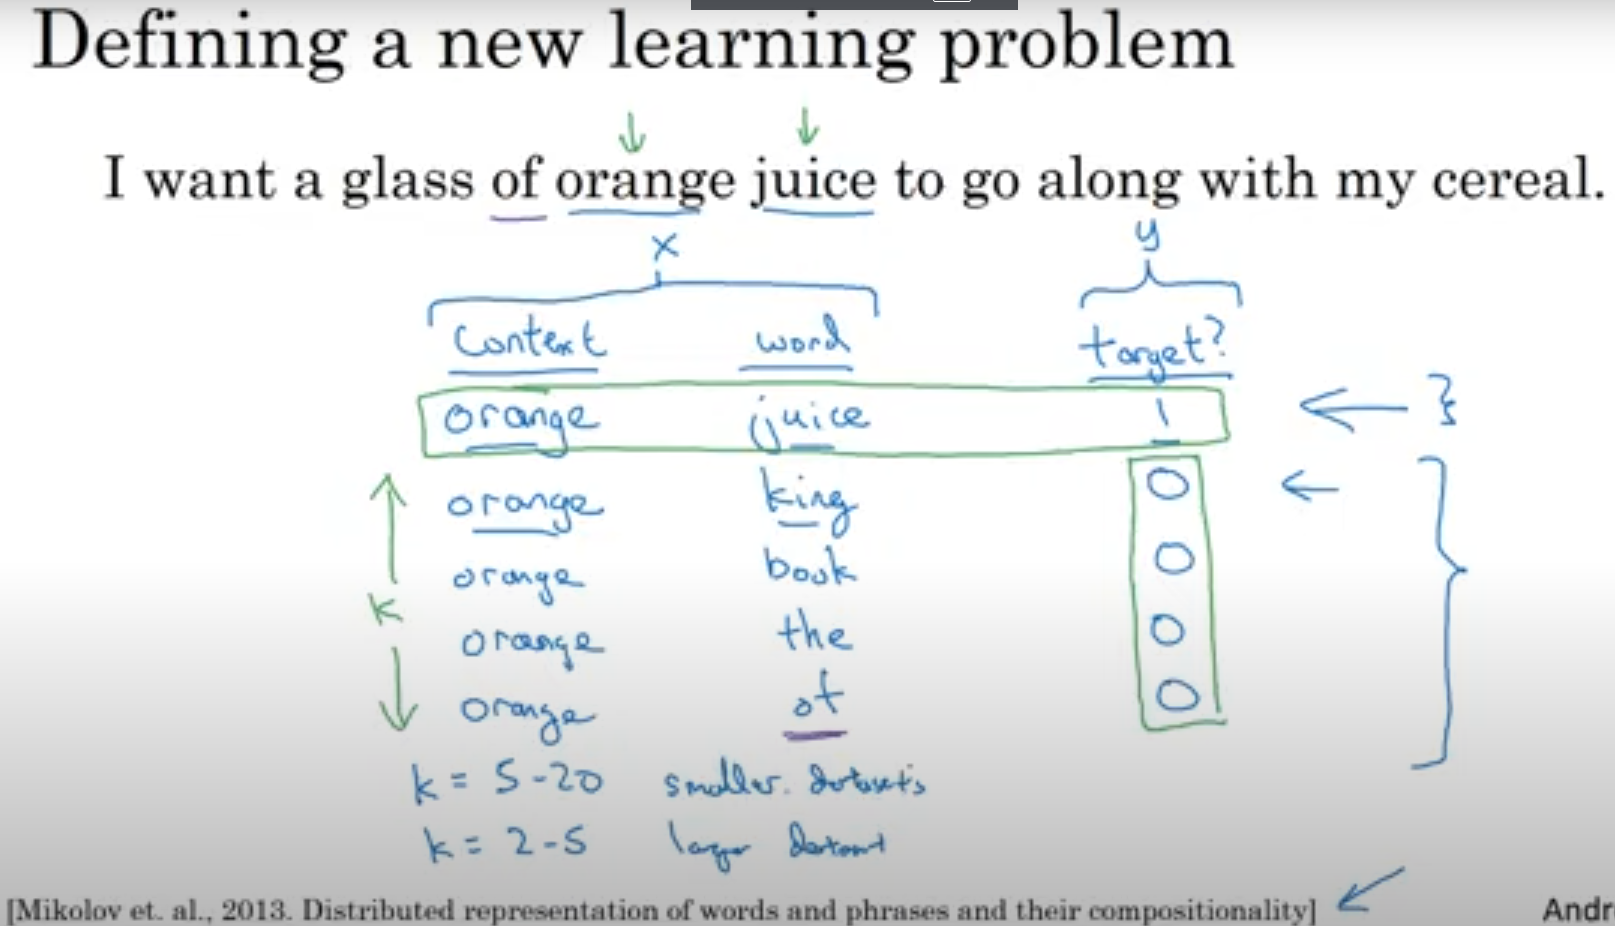 Defining a new learning problem
I want a glass of orange juice to go along with my cereal.
x y
Context word target?
orange juice 1
orange king 0
orange book 0
k
orange the 0
orange of 0
k = 5-20 smaller. datasets
k = 2-5 larger dataset
[Mikolov et. al., 2013. Distributed representation of words and phrases and their compositionality] Andr